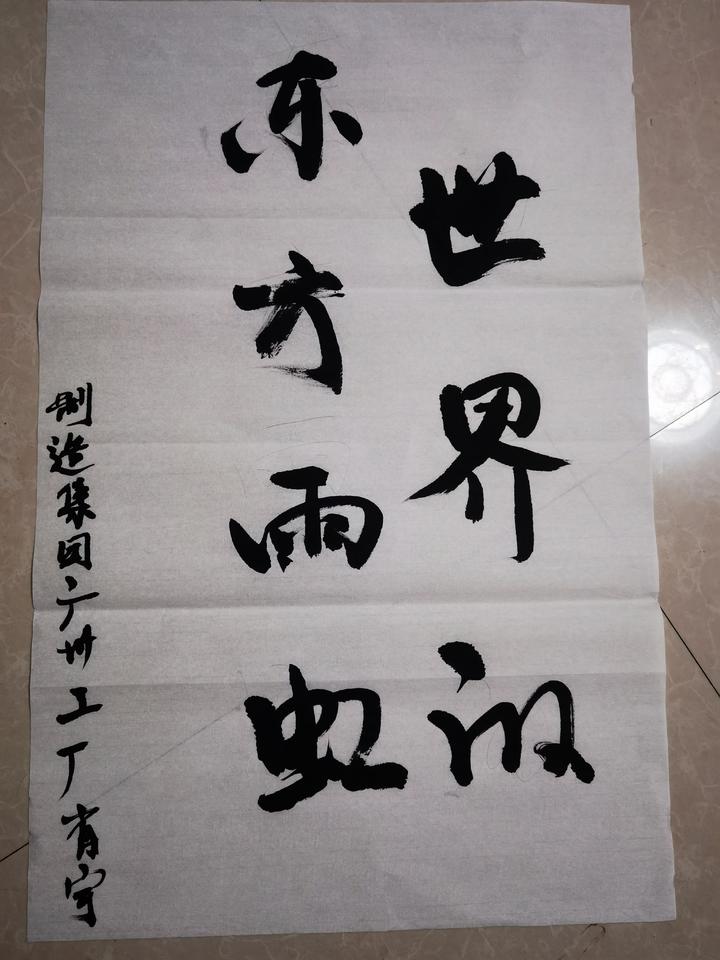 世界的
东方雨虹
制造集团广州工厂肖宇